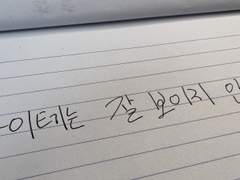 이터는 잘 보이지